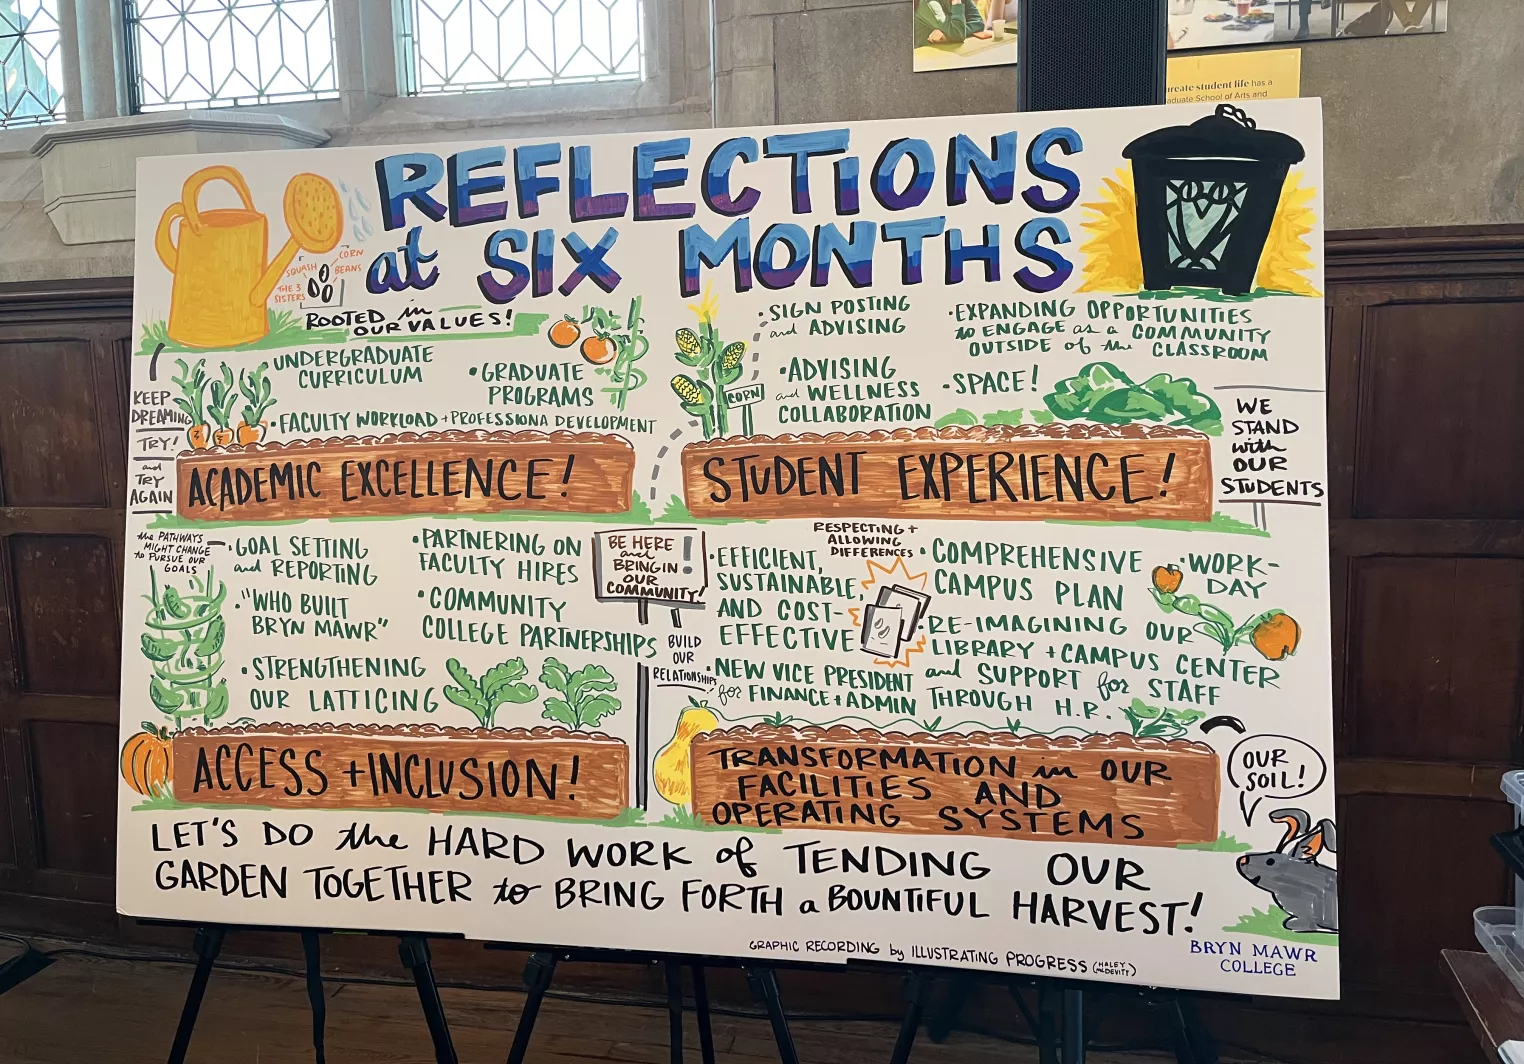 ureate student life has a
aduate School of Arts and
REFLECTIONS
at SIX MONTHS
SQUASH
CORN
BEANS
THE 3
SISTERS
ROOTED in
OUR VALUES!
KEEP
DREAMING
TRY!
and
TRY
AGAIN
· UNDERGRADUATE
CURRICULUM
· GRADUATE
PROGRAMS
· FACULTY WORKLOAD + PROFESSIONA DEVELOPMENT
ACADEMIC EXCELLENCE!
· SIGN POSTING
and ADVISING
· ADVISING
and WELLNESS
COLLABORATION
· EXPANDING OPPORTUNITIES
to ENGAGE as a COMMUNITY
OUTSIDE of the CLASSROOM
· SPACE!
CORN
STUDENT EXPERIENCE!
WE
STAND
with
OUR
STUDENTS
the PATHWAYS
MIGHT CHANGE
to PURSUE OUR
GOALS
· GOAL SETTING
and REPORTING
· "WHO BUILT
BRYN MAWR"
· STRENGTHENING
OUR LATTICING
· PARTNERING ON
FACULTY HIRES
· COMMUNITY
COLLEGE PARTNERSHIPS
ACCESS + INCLUSION!
BE HERE
and
BRING IN
OUR
COMMUNITY!
BUILD
OUR
RELATIONSHIPS
RESPECTING +
ALLOWING
DIFFERENCES
· EFFICIENT,
SUSTAINABLE,
AND COST-
EFFECTIVE
· NEW VICE PRESIDENT
for FINANCE + ADMIN
· COMPREHENSIVE
CAMPUS PLAN
· WORK-
DAY
· RE-IMAGINING OUR
LIBRARY + CAMPUS CENTER
and SUPPORT for STAFF
THROUGH H.R.
TRANSFORMATION in OUR
FACILITIES AND
OPERATING SYSTEMS
OUR
SOIL!
LET'S DO the HARD WORK of TENDING OUR
GARDEN TOGETHER to BRING FORTH a BOUNTIFUL HARVEST!
GRAPHIC RECORDING by ILLUSTRATING PROGRESS (HALEY
McDEVITT)
BRYN MAWR
COLLEGE